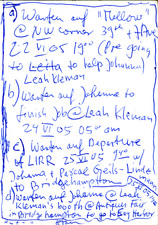 a) Warten auf "Mellow"
@ NW corner 39th + 7 Ave
22 VI 05 19⁰⁰ (Pre going
to Leitta to help Johanna)
Leah Kleman
b) Warten auf Johanna to
finish job @ Leah Kleman
24 VI 05 05⁰⁰ am
c) Warten auf Departure
of LIRR 25 VI 05 w/
Johanna & Pascal Geils-Linde
to Bridgehampton
d) Warten auf Johanna @ Leah
Kleman's booth @ Antique fair
in Bridgehampton to go to Sag Harbor